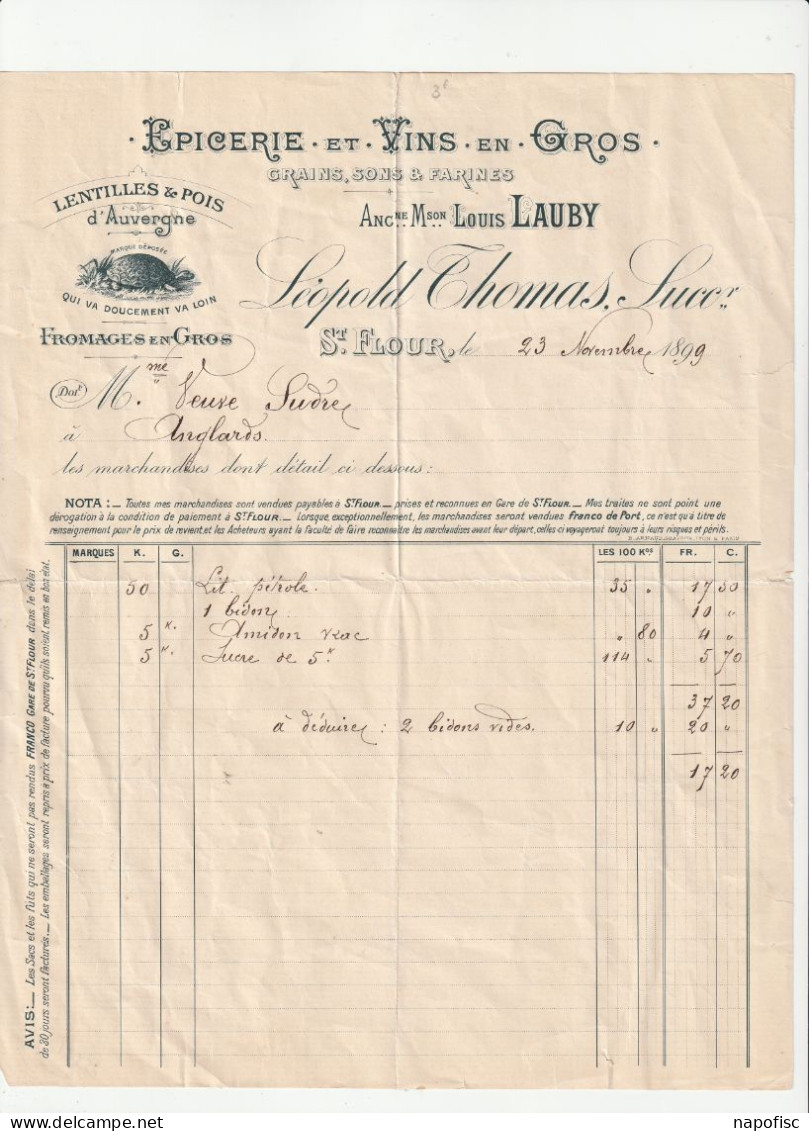 3f
· EPICERIE · ET · VINS · EN · GROS ·
GRAINS, SONS & FARINES
LENTILLES & POIS
d'Auvergne
MARQUE DÉPOSÉE
QUI VA DOUCEMENT VA LOIN
FROMAGES EN GROS
ANCNE MSON LOUIS LAUBY
Léopold Thomas, Succr
ST FLOUR, le 23 Novembre 1899
Doit Mme Veuve Sudre
à Anglards.
les marchandises dont détail ci dessous :
NOTA :— Toutes mes marchandises sont vendues payables à ST FLOUR.— prises et reconnues en Gare de ST FLOUR.— Mes traites ne sont point une
dérogation à la condition de paiement à ST FLOUR.— Lorsque, exceptionnellement, les marchandises seront vendues franco de Port, ce n'est qu'à titre de
renseignement pour le prix de revient, et les Acheteurs ayant la faculté de faire reconnaître les marchandises avant leur départ, celles-ci voyageront toujours à leurs risques et périls.
MARQUES K. G. LES 100 KOS FR. C.
50 Lit. pétrole. 35 " 17 50
1 bidon 10 "
5 K. Amidon vrac " 80 4 "
5 K. Sucre de 5K 114 " 5 70
37 20
à déduire : 2 bidons vides. 10 " 20 "
17 20
AVIS:— Les Sacs et les fûts qui ne seront pas rendus FRANCO GARE DE ST FLOUR dans le délai
de 30 jours seront facturés.— Les emballages seront repris à prix de facture pourvu qu'ils soient remis en bon état.
napofisc